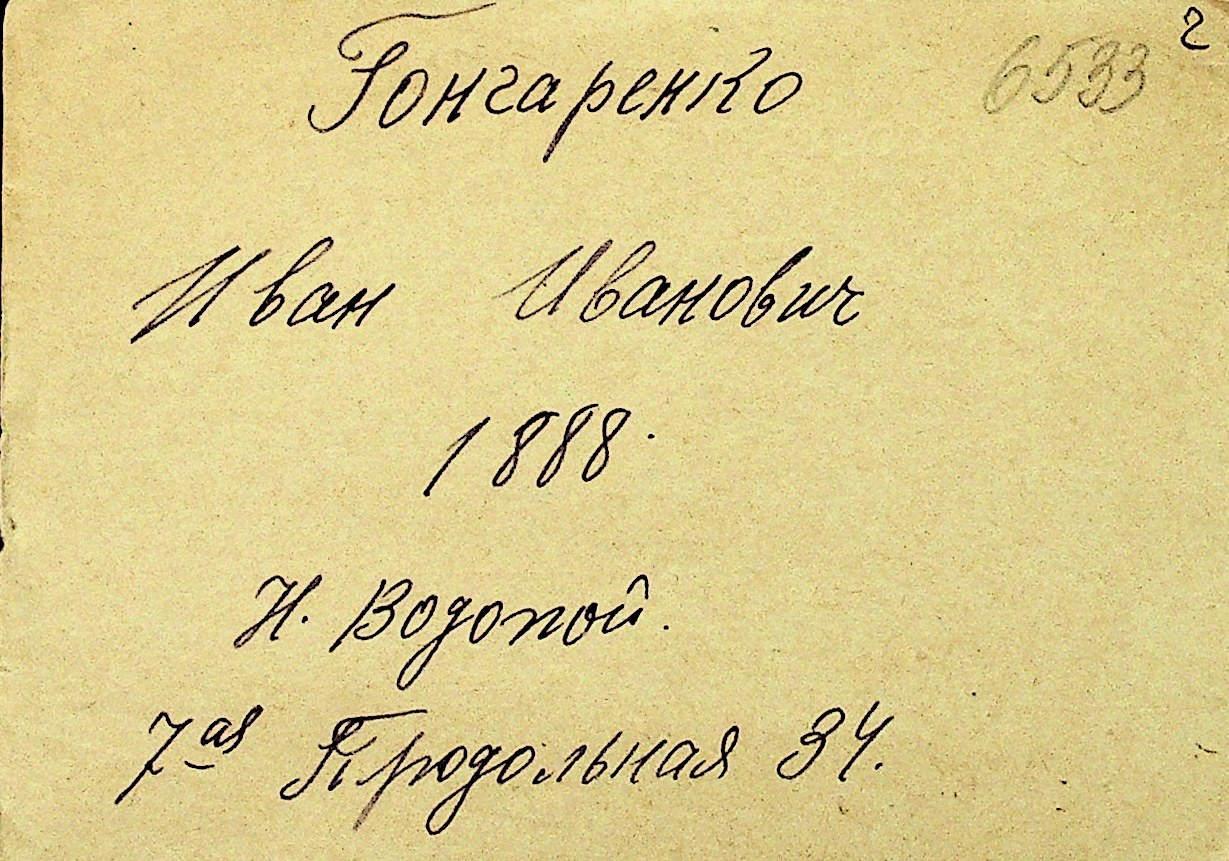 Гончаренко 6533 2
Иван Иванович
1888.
Н. Водопой.
7ая Продольная 34.